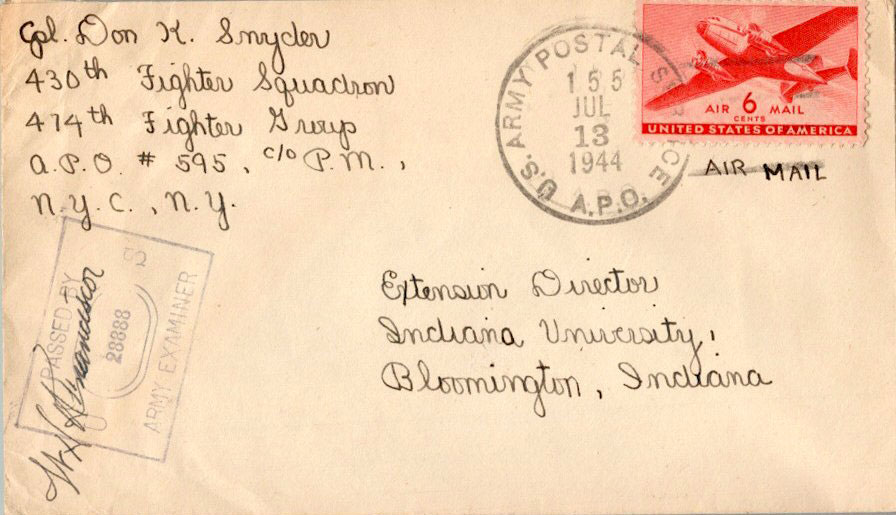 Cpl. Don K. Snyder
430th Fighter Squadron
474th Fighter Group
A.P.O. # 595, c/o P.M.,
N.Y.C., N.Y.
U.S. ARMY POSTAL SERVICE
155
JUL
13
1944
A.P.O.
AIR 6 MAIL
CENTS
UNITED STATES OF AMERICA
AIR MAIL
Extension Director
Indiana University,
Bloomington, Indiana
PASSED BY
28888
ARMY EXAMINER